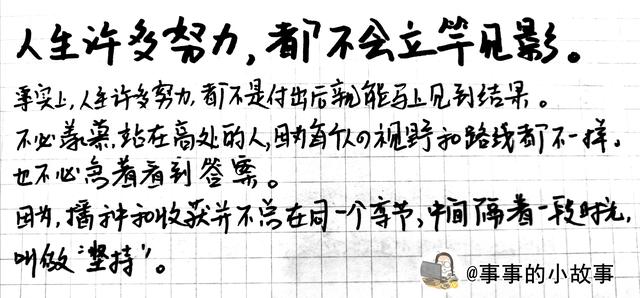 人生许多努力,都不会立竿见影。
事实上,人生许多努力,都不是付出后就能马上见到结果。
不必羡慕,站在高处的人,因为每个人の视野和路线都不一样,
也不必急着看到答案。
因为,播种和收获并不总在同一个季节,中间隔着一段时光,
叫做“坚持”。
@事事的小故事